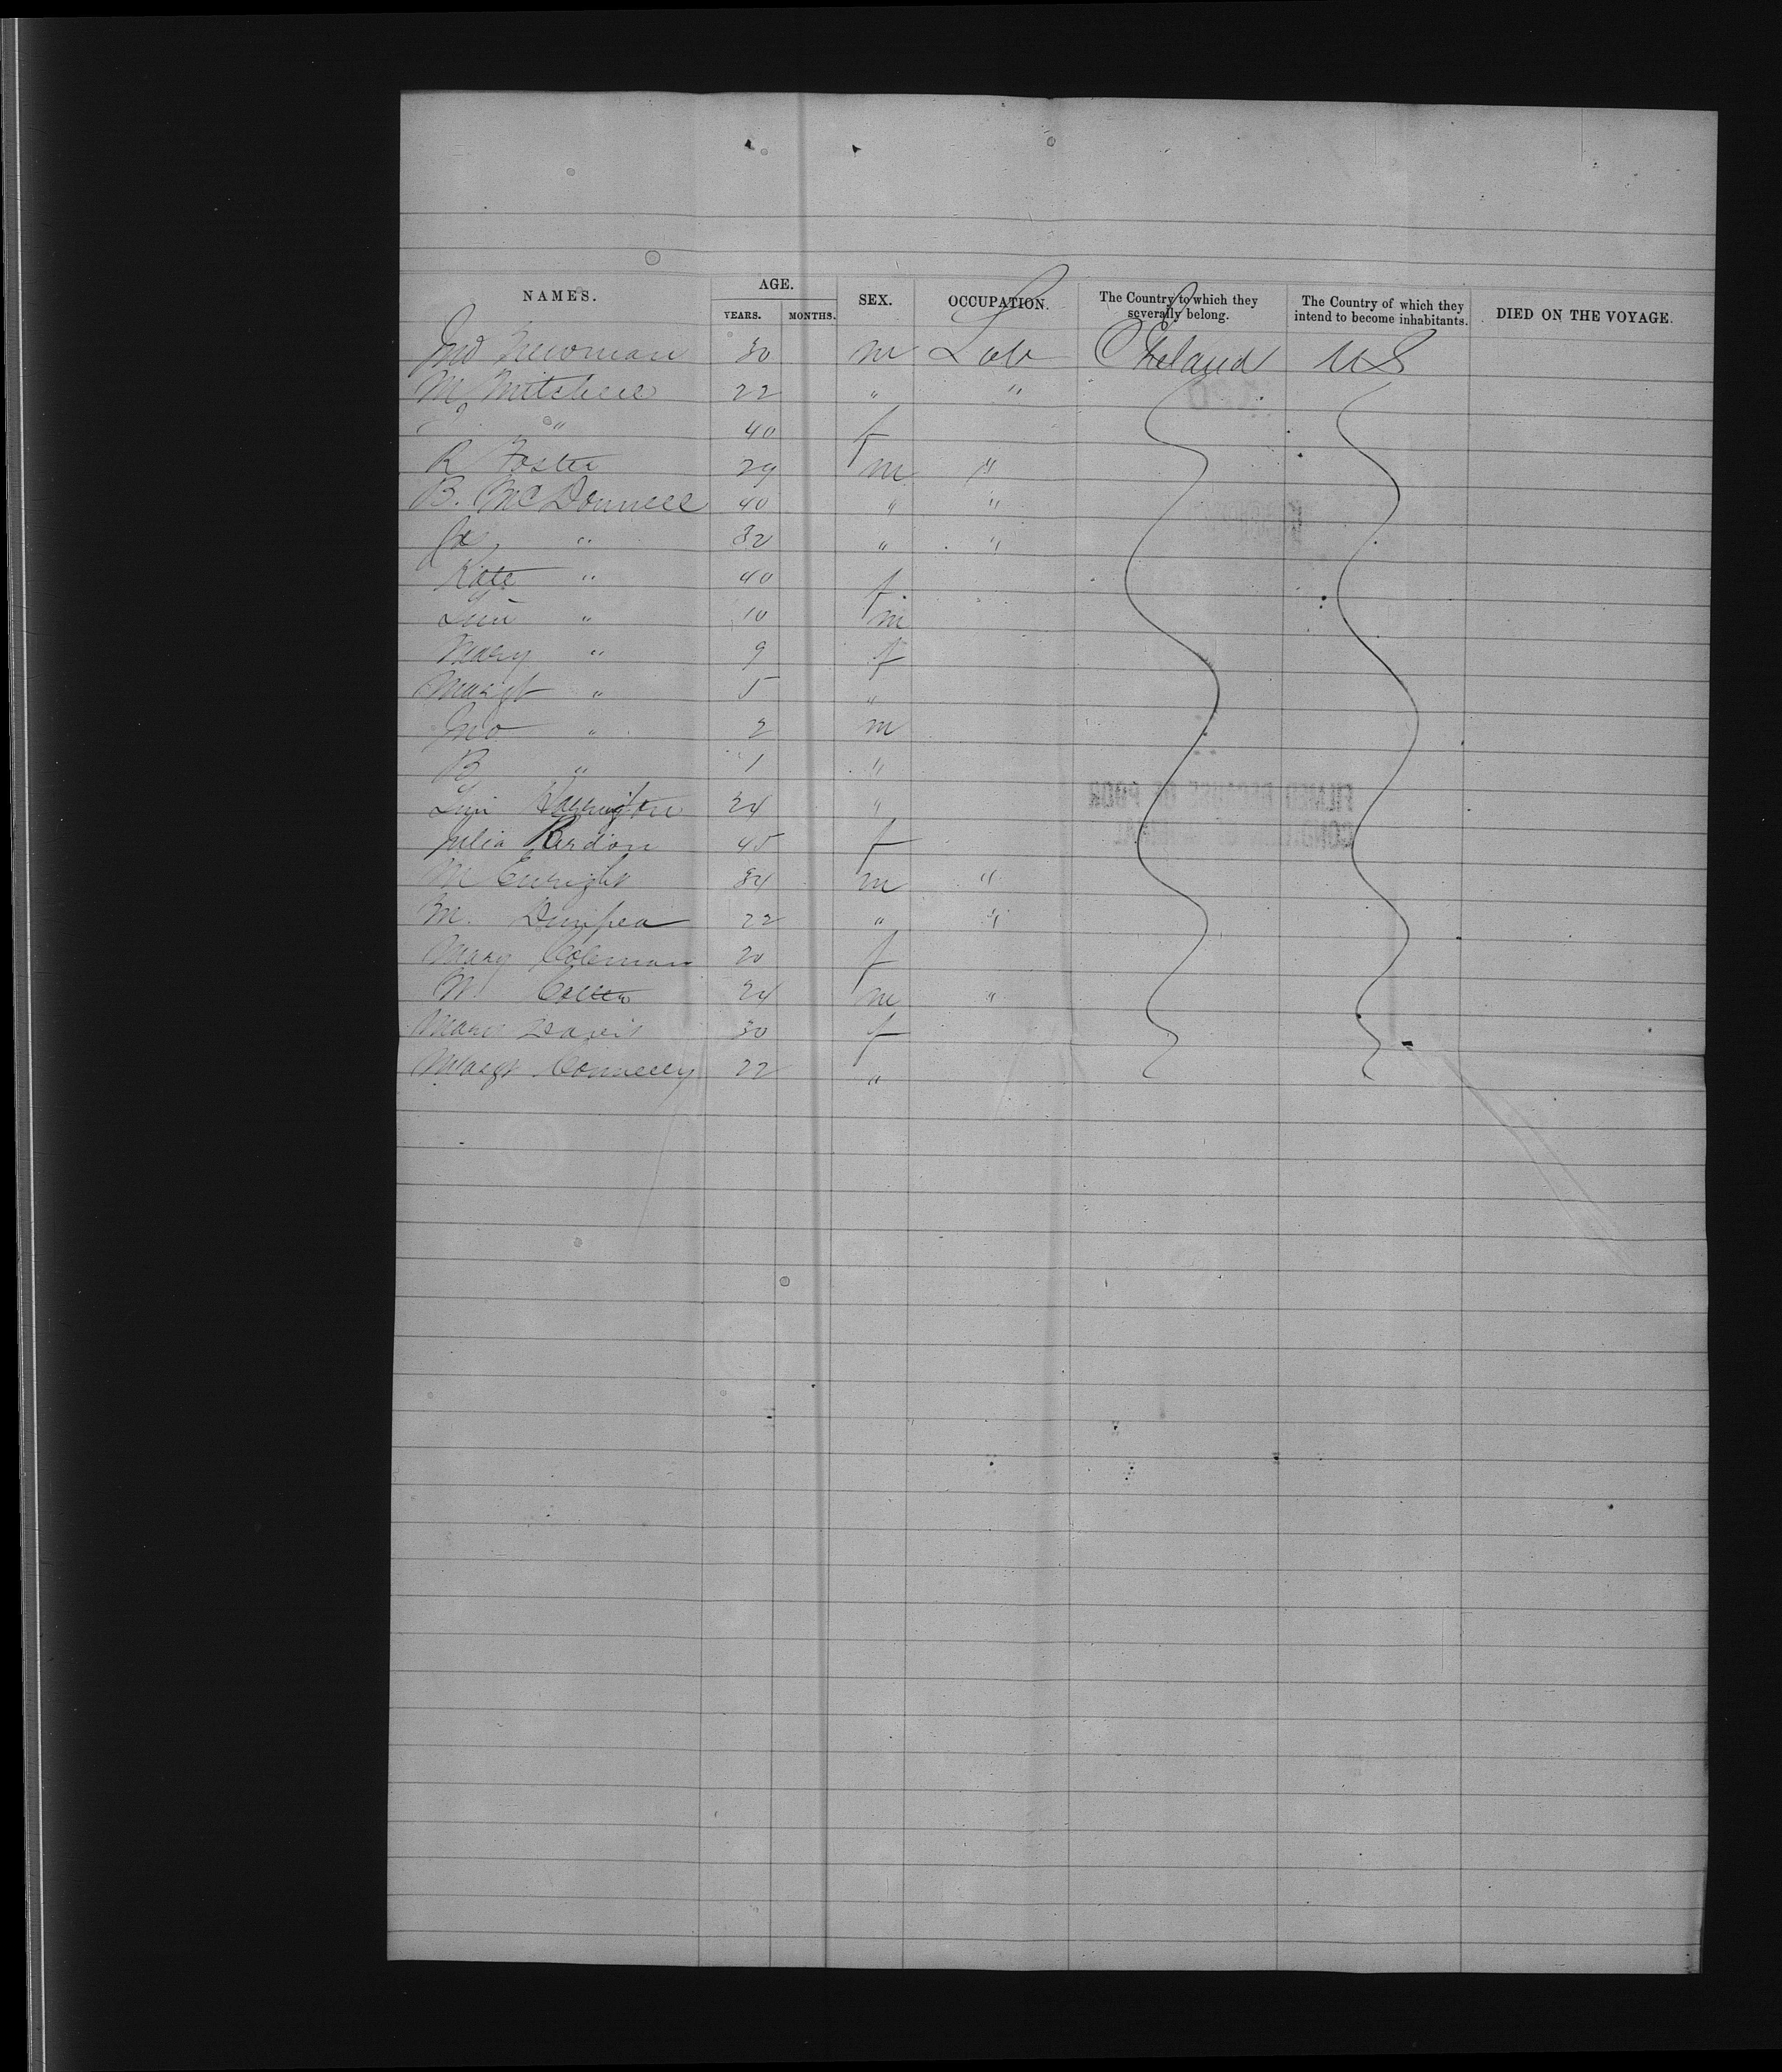 NAMES. AGE. SEX. OCCUPATION. The Country to which they severally belong. The Country of which they intend to become inhabitants. DIED ON THE VOYAGE.
YEARS. MONTHS.
Jno Newman 30 m Lab Ireland US
M Mitchell 22 " "
" 40 f
R Foster 29 m "
B. McDonnell 40 " "
" 32 " "
Kate " 40 f
" 10 m
Mary " 9 f
Margt " 5 "
Jno " 2 m
B " 1 "
Harrington 24 "
Julia Reardon 45 f
M Enright 34 m "
M. Dunphea 22 " "
Mary Coleman 20 f
24 m "
Mary Davis 30 f
Margt Connelly 22 "
FILMED BECAUSE OF POOR
CONDITION OF ORIGINAL